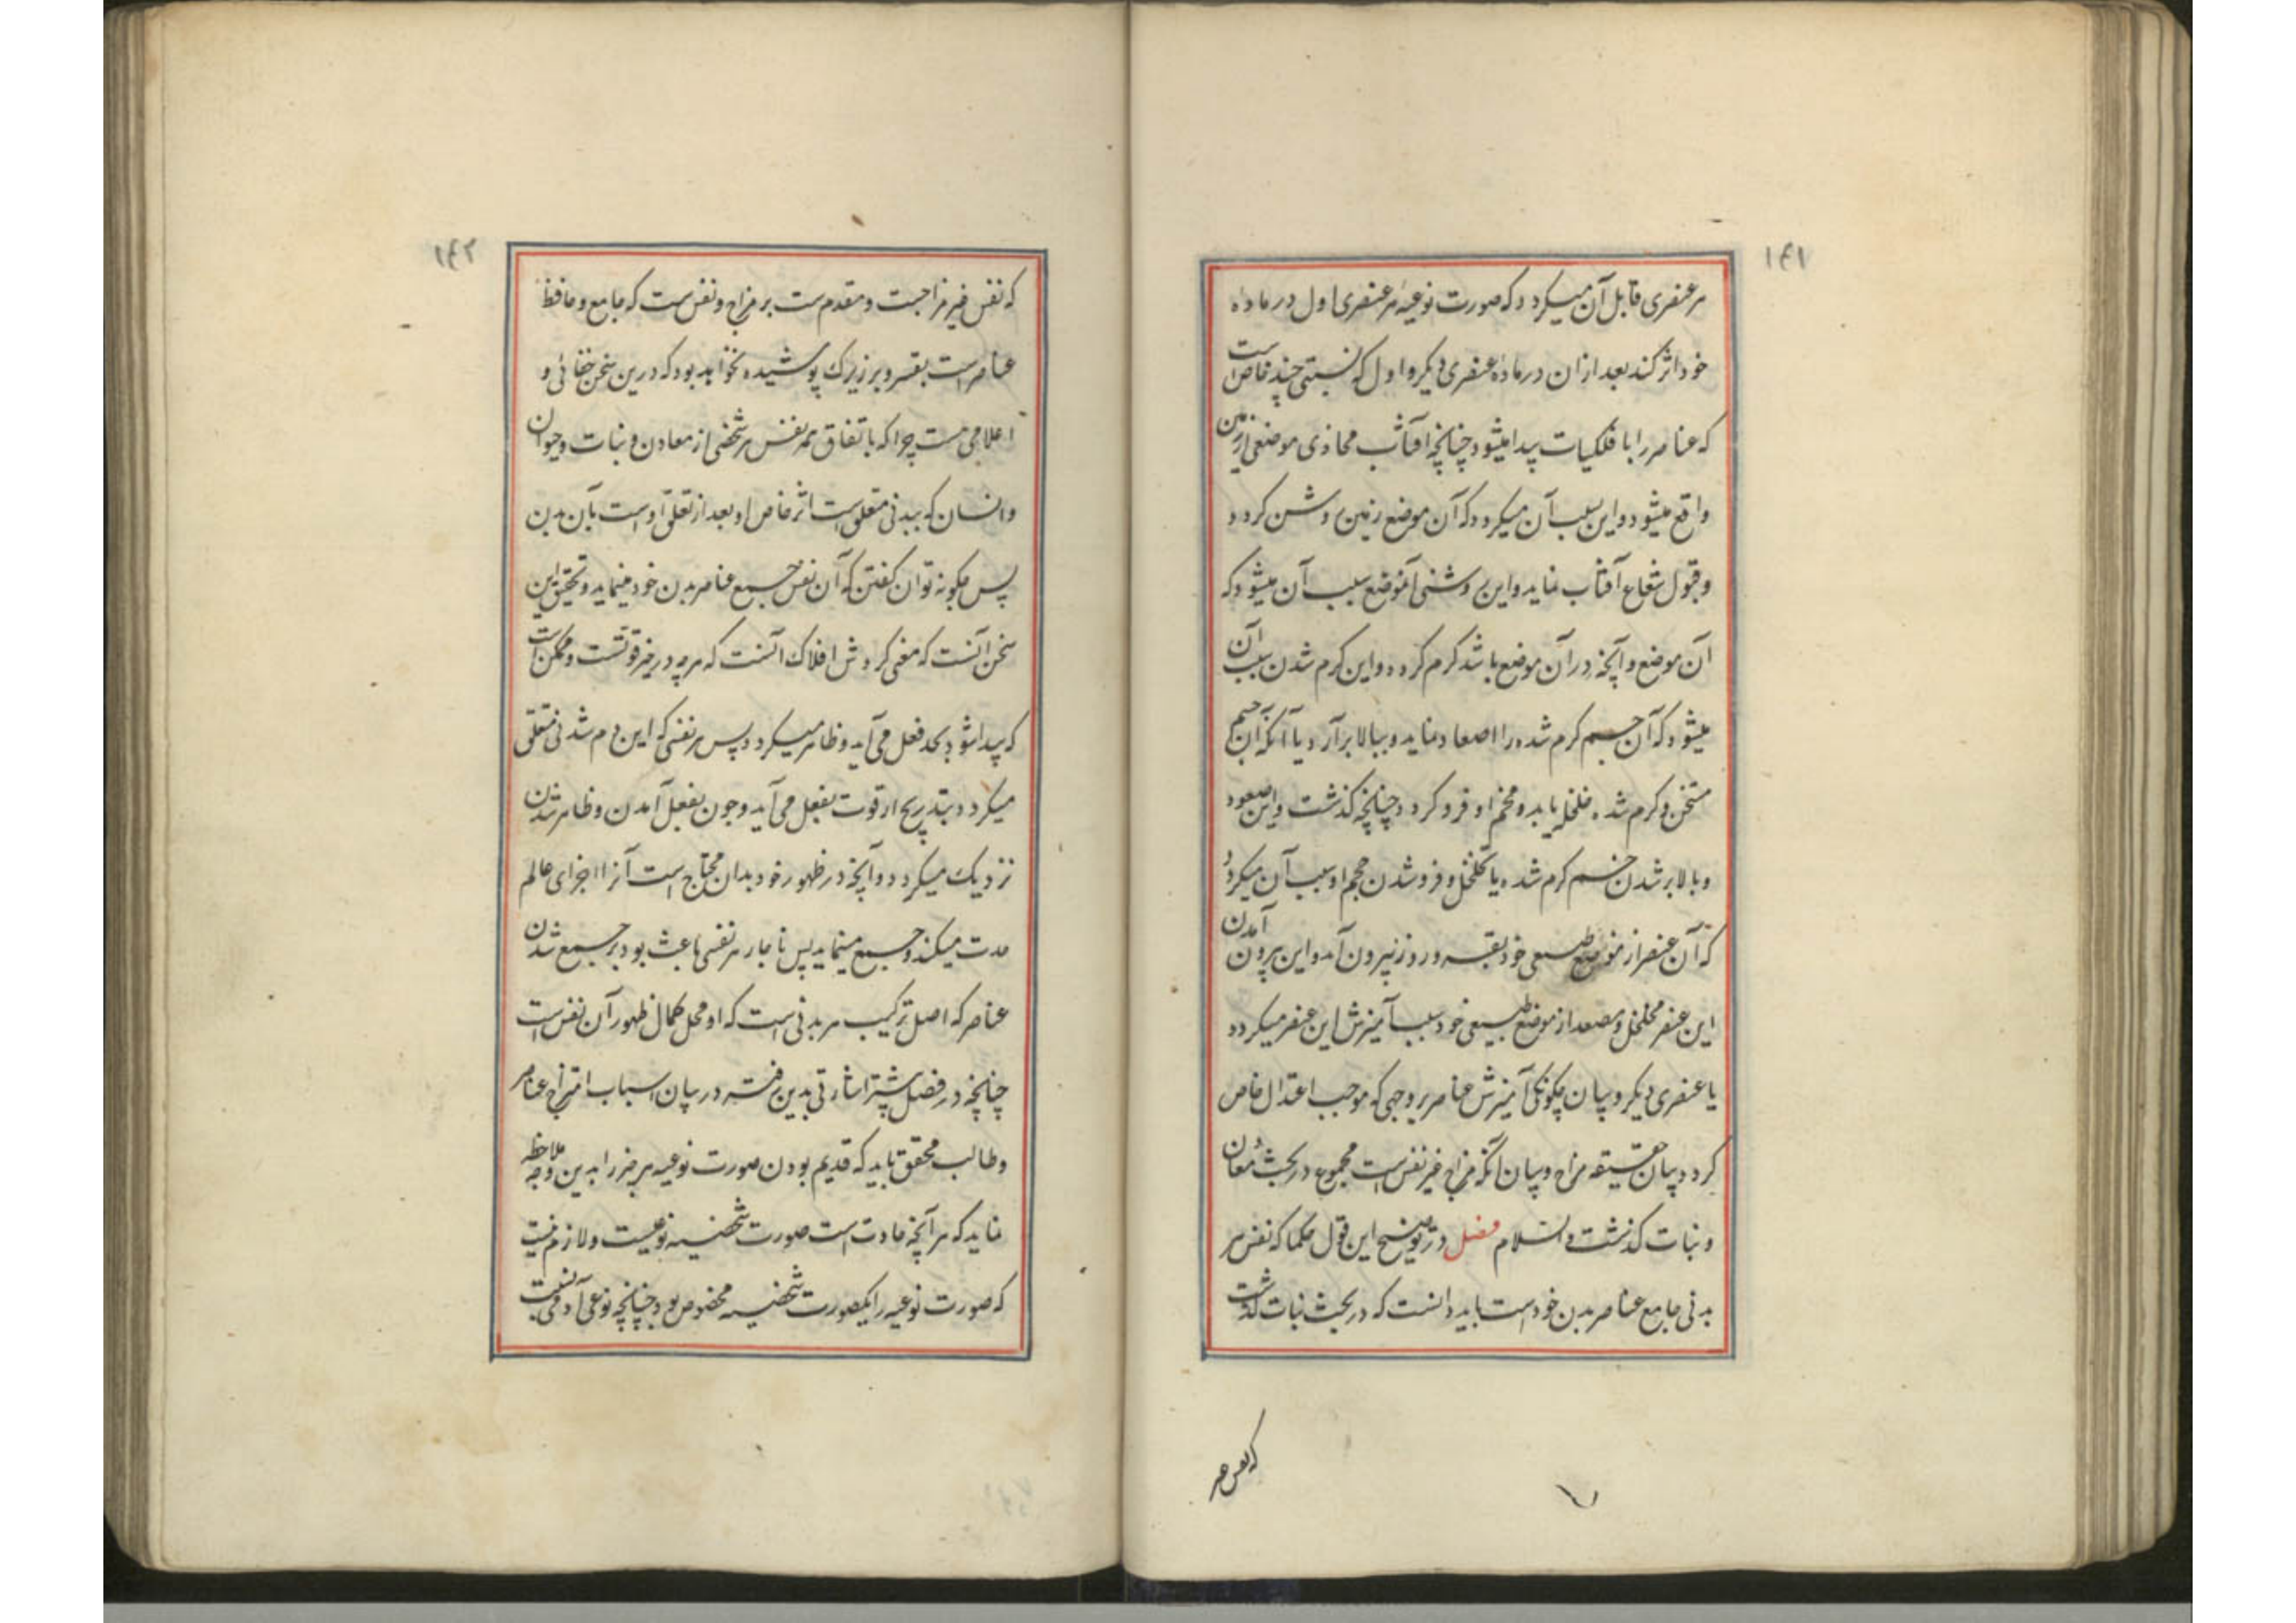 ۱۴۱
هر عنصری قابل آن میکردد که صورت نوعیهٔ هر عنصری اول در ماده
خود اثر کند بعد ازان در مادهٔ عنصری دیکر و اول که نسبتی چند خاص است
که عناصر را با فلکیات پیدا میشود چنانچه آفتاب محاذی موضعی از زمین
واقع میشود و این سبب آن میکردد که آن موضع زمین روشن کردد
و قبول شعاع آفتاب نماید و این روشنی آنموضع سبب آن میشود که
آن موضع و آنچه در آن موضع باشد کرم کردد و این کرم شدن سبب آن
میشود که آن جسم کرم شده را اصعاد نماید و ببالا برآرد یا آنکه آن جسم
متسخن و کرم شده خلخله یابد و حجم او فرو کردد چنانچه کذشت و این صعود
و بالا بر شدن جسم کرم شده یا تخلخل و فرو شدن حجم او سبب آن میکردد
که آن عنصر از موضع طبیعی خود بقسر و زور بیرون آمد و این بیرون آمدن
این عنصر مخلخل و مصعد از موضع طبیعی خود سبب آمیزش این عنصر میکردد
با عنصری دیکر و بیان چکونکی آمیزش عناصر بر وجهی که موجب اعتدال خاص
کردد و بیان حقیقه مزاج و بیان آنکه مزاج غیر نفس است مجموع در بحث معادن
و نبات کذشت والسلام فصل در توضیح این قول حکما که نفس هر
بدنی جامع عناصر بدن خود است باید دانست که در بحث نبات کذشت
که نفس غیر
۱۴۲
که نفس غیر مزاجست و مقدم ست بر مزاج و نفس ست که جامع و حافظ
عناصر است بقسر و بر زیرک پوشیده نخواهد بود که درین سخن خفائی و
اعلامی هست چرا که باتفاق همه نفس هر شخصی از معادن و نبات و حیوان
و انسان که ببدنی متعلق است اثر خاص او بعد از تعلق اوست بآن بدن
پس چکونه توان کفتن که آن نفس جمع عناصر بدن خود مینماید و تحقیق این
سخن آنست که مقتضی کردش افلاک آنست که هر چه در حیز قوتست و ممکن است
که پیدا شود بحد فعل می آید و ظاهر میکردد پس هر نفسی که این دم شدنی متعلق
میکردد بتدریج از قوت بفعل می آید و چون بفعل آمدن و ظاهر شدن
نزدیک میکردد و آنچه در ظهور خود بدان محتاج است آنرا اجزای عالم
مدت میکند و جمع مینماید پس ناچار هر نفسی باعث بود بر جمع شدن
عناصر که اصل ترکیب هر بدنی است که او محل کمال ظهور آن نفس است
چنانچه در فصل پیشتر اشارتی بدین رفت در بیان اسباب امتزاج عناصر
و طالب محقق باید که قدیم بودن صورت نوعیه هر چیز را بدین وجه ملاحظه
نماید که هر آنچه حادث است صورت شخصیه نوعیست و لازم نیست
که صورت نوعیه را یکصورت شخصیه مخصوص بود چنانچه نوعی آدمی